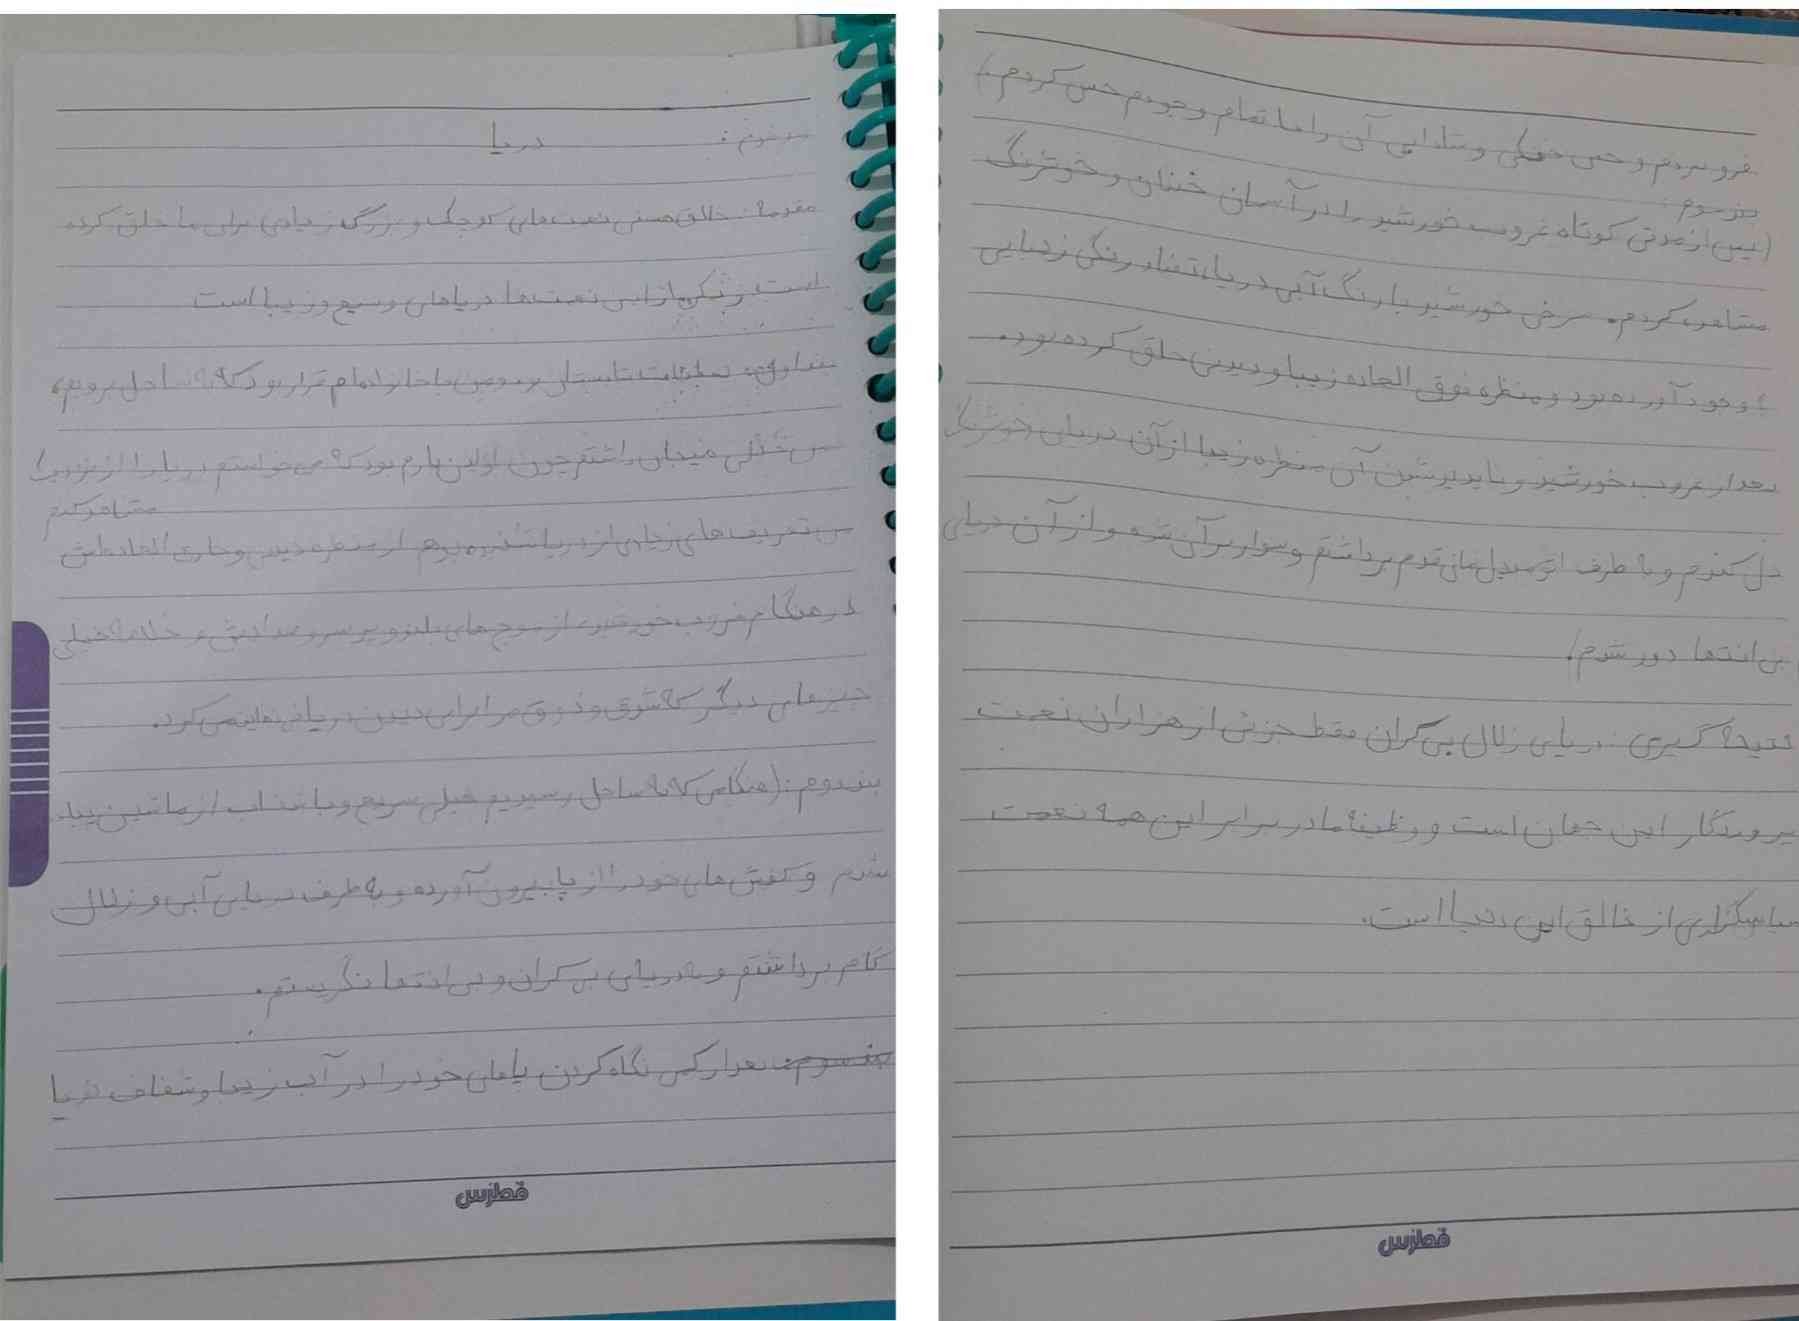 موضوع: دریا
مقدمه: خالق هستی نعمت‌های کوچک و بزرگ زیادی برای ما خلق کرده
است و یکی از این نعمت‌ها دریاهای وسیع و زیبا است
تعطیلات تابستان بود و من با خانواده‌ام قرار بود که به ساحل برویم،
من خیلی هیجان داشتم چون اولین بارم بود که می‌خواستم دریا را از نزدیک
مشاهده کنم
من تعریف‌های زیادی از دریا شنیده بودم از منظره دیدنی و خارق العاده‌اش
در هنگام غروب خورشید، از موج‌های بلند و پر سر و صدایش و خلاصه خیلی
چیزهای دیگر که شوق و ذوق مرا برای دیدن دریا می‌کرد.
بند دوم: (هنگامی که به ساحل رسیدیم خیلی سریع و با شتاب از ماشین پیاده
شدم و کفش‌های خود را از پا بیرون آورده و به طرف دریای آبی و زلال
گام برداشتم و به دریای بی کران و بی انتها نگریستم.
بند سوم: بعد از کمی نگاه کردن پاهای خود را در آب زیبا و شفاف دریا
فرو بردم و حس خنکی و شادابی آن را با تمام وجودم حس کردم.)
بند سوم:
(پس از مدتی کوتاه غروب خورشید را در آسمان خندان و خوشرنگ
مشاهده کردم. سرخی خورشید با رنگ آبی دریا تضاد رنگی زیبایی
بوجود آورده بود و منظره فوق العاده زیبا و دیدنی خلق کرده بود.
بعد از غروب خورشید و ناپدید شدن آن منظره زیبا از آن دریای خوشرنگ
دل کندم و به طرف اتومبیل‌مان قدم برداشتم و سوار بر آن شده و از آن دریای
بی انتها دور شدم)
نتیجه گیری: دریای زلال بی کران فقط جزئی از هزاران نعمت
پروردگار این جهان است و وظیفه ما در برابر این همه نعمت
سپاسگزاری از خالق این دنیا است.
قطرس
قطرس